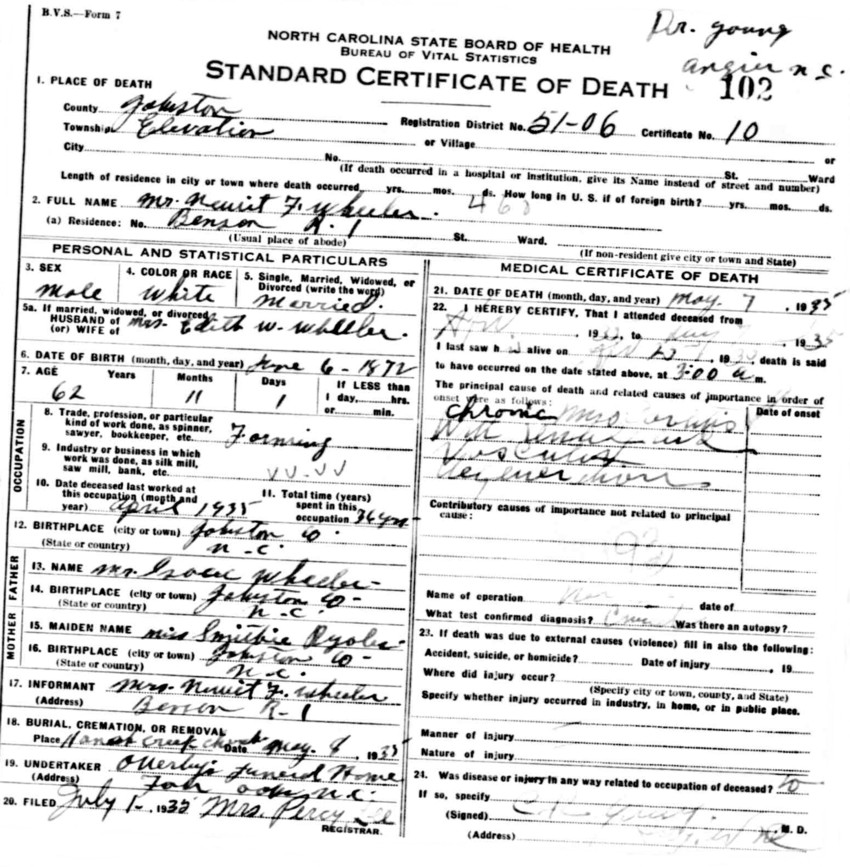 B.V.S.—Form 7
Dr. Young
Angier N.C.
NORTH CAROLINA STATE BOARD OF HEALTH
BUREAU OF VITAL STATISTICS
STANDARD CERTIFICATE OF DEATH 102
1. PLACE OF DEATH
County Johnston Registration District No. 51-06 Certificate No. 10
Township Elevation or Village or
City No. St. Ward
(If death occurred in a hospital or institution, give its Name instead of street and number)
Length of residence in city or town where death occurred yrs. mos. ds. How long in U. S. if of foreign birth? yrs. mos. ds.
2. FULL NAME Mr. Newit F. Wheeler.
(a) Residence: No. Benson R. 1 St. Ward.
(Usual place of abode) (If non-resident give city or town and State)
PERSONAL AND STATISTICAL PARTICULARS
3. SEX
male
4. COLOR OR RACE
White
5. Single, Married, Widowed, or
Divorced (write the word)
married.
5a. If married, widowed, or divorced
HUSBAND of Mrs. Edith W. Wheeler.
(or) WIFE of
6. DATE OF BIRTH (month, day, and year) June 6-1872
7. AGE Years Months Days If LESS than
62 11 1 1 day, hrs.
or min.
OCCUPATION
8. Trade, profession, or particular
kind of work done, as spinner,
sawyer, bookkeeper, etc. Farming
9. Industry or business in which
work was done, as silk mill,
saw mill, bank, etc.
10. Date deceased last worked at
this occupation (month and
year) April 1935
11. Total time (years)
spent in this
occupation 36 yrs
12. BIRTHPLACE (city or town) Johnston Co
(State or country) N.C.
FATHER
13. NAME Mr. Isaac Wheeler
14. BIRTHPLACE (city or town) Johnston Co
(State or country) N.C.
MOTHER
15. MAIDEN NAME Miss Smithie
16. BIRTHPLACE (city or town) Johnston Co
(State or country) N.C.
17. INFORMANT Mrs. Newit F. Wheeler
(Address) Benson R-1
18. BURIAL, CREMATION, OR REMOVAL
Place Creek church Date May. 8, 1935
19. UNDERTAKER Overbys Funeral Home
(Address) N.C.
20. FILED July 1-, 1935 Mrs. Percy Lee
REGISTRAR.
MEDICAL CERTIFICATE OF DEATH
21. DATE OF DEATH (month, day, and year) May 7, 1935
22. I HEREBY CERTIFY, That I attended deceased from
, 19 , to , 1935
I last saw h alive on , 19 , death is said
to have occurred on the date stated above, at 3:00 a m.
The principal cause of death and related causes of importance in order of
onset were as follows: Date of onset
Chronic
With
Vascular
degeneration
Contributory causes of importance not related to principal
cause:
Name of operation date of
What test confirmed diagnosis? Was there an autopsy?
23. If death was due to external causes (violence) fill in also the following:
Accident, suicide, or homicide? Date of injury , 19
Where did injury occur?
(Specify city or town, county, and State)
Specify whether injury occurred in industry, in home, or in public place.
Manner of injury
Nature of injury
24. Was disease or injury in any way related to occupation of deceased?
If so, specify
(Signed) Young, M. D.
(Address)